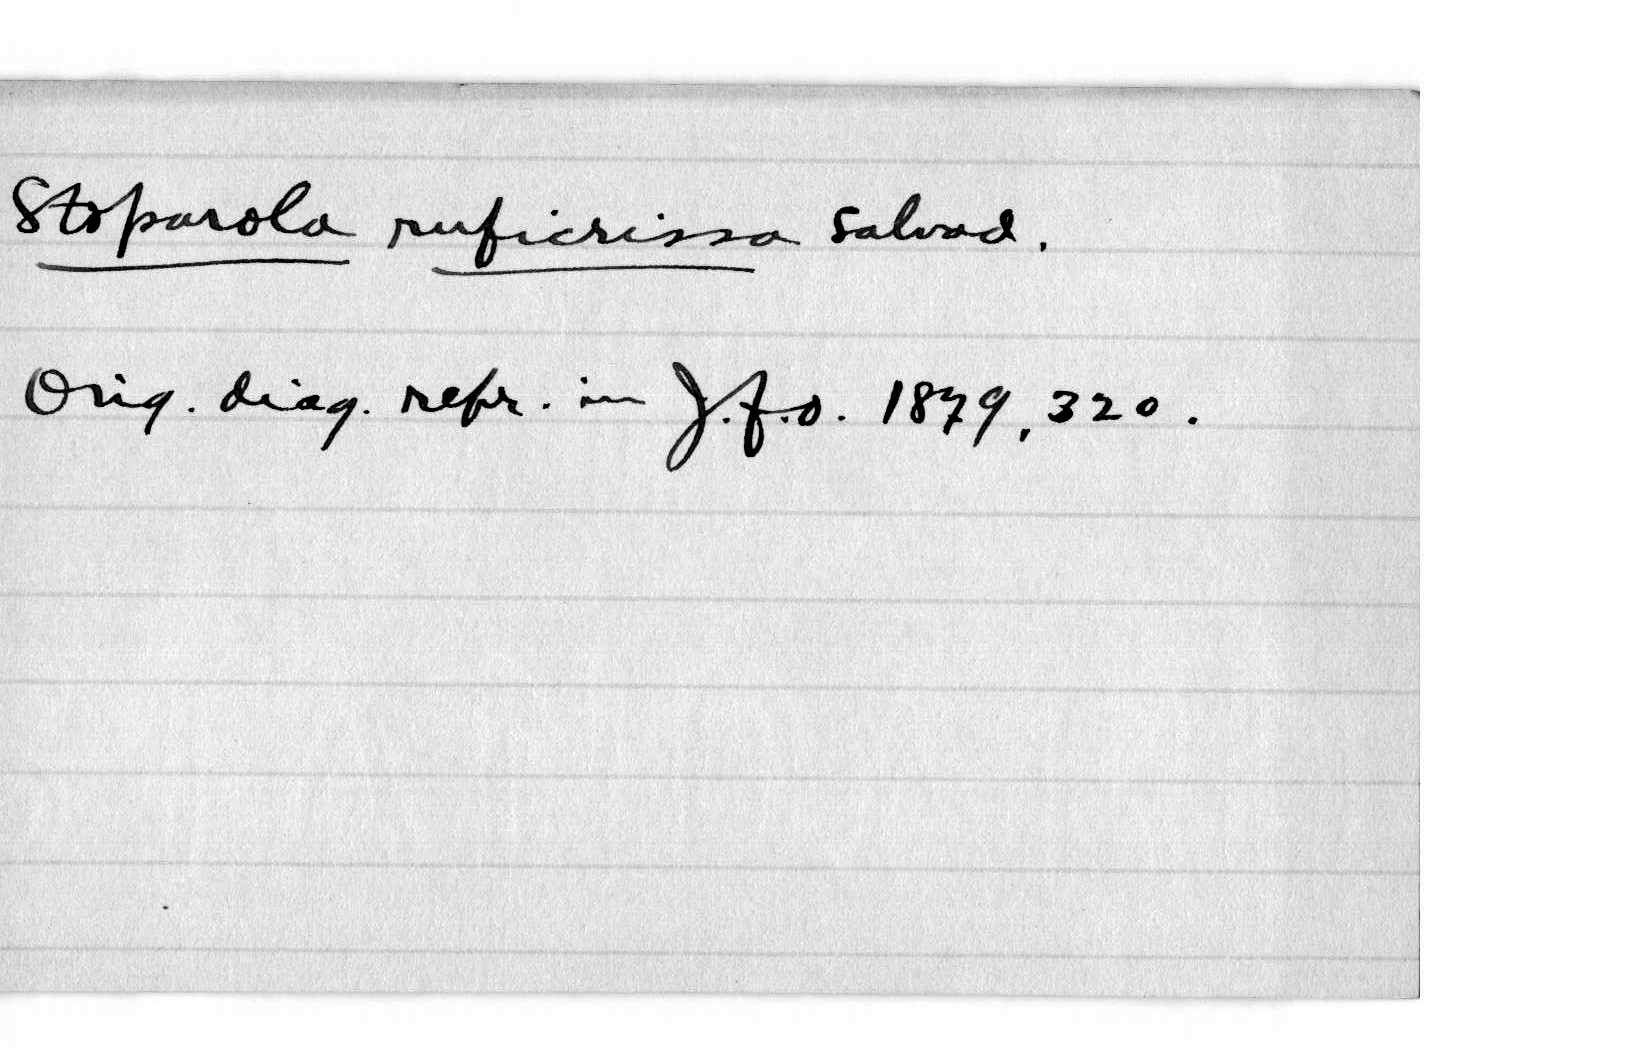 Stoparola ruficrissa Salvad.
Orig. diag. repr. in J.f.O. 1879, 320.